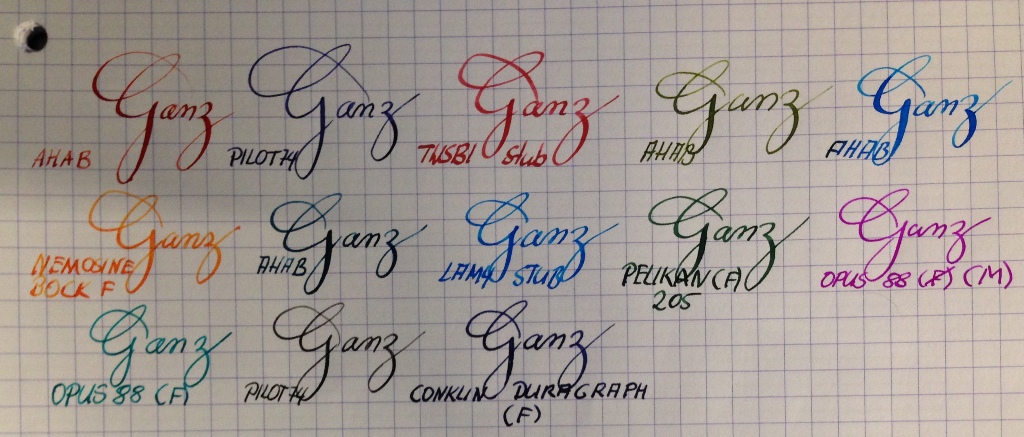 Ganz Ganz Ganz Ganz Ganz
AHAB PILOT74 TWSBI Stub AHAB AHAB
Ganz Ganz Ganz Ganz Ganz
NEMOSINE AHAB LAMY STUB PELIKAN (F) OPUS 88 (F) (M)
BOCK F 205
Ganz Ganz Ganz
OPUS 88 (F) PILOT74 CONKLIN DURAGRAPH
(F)